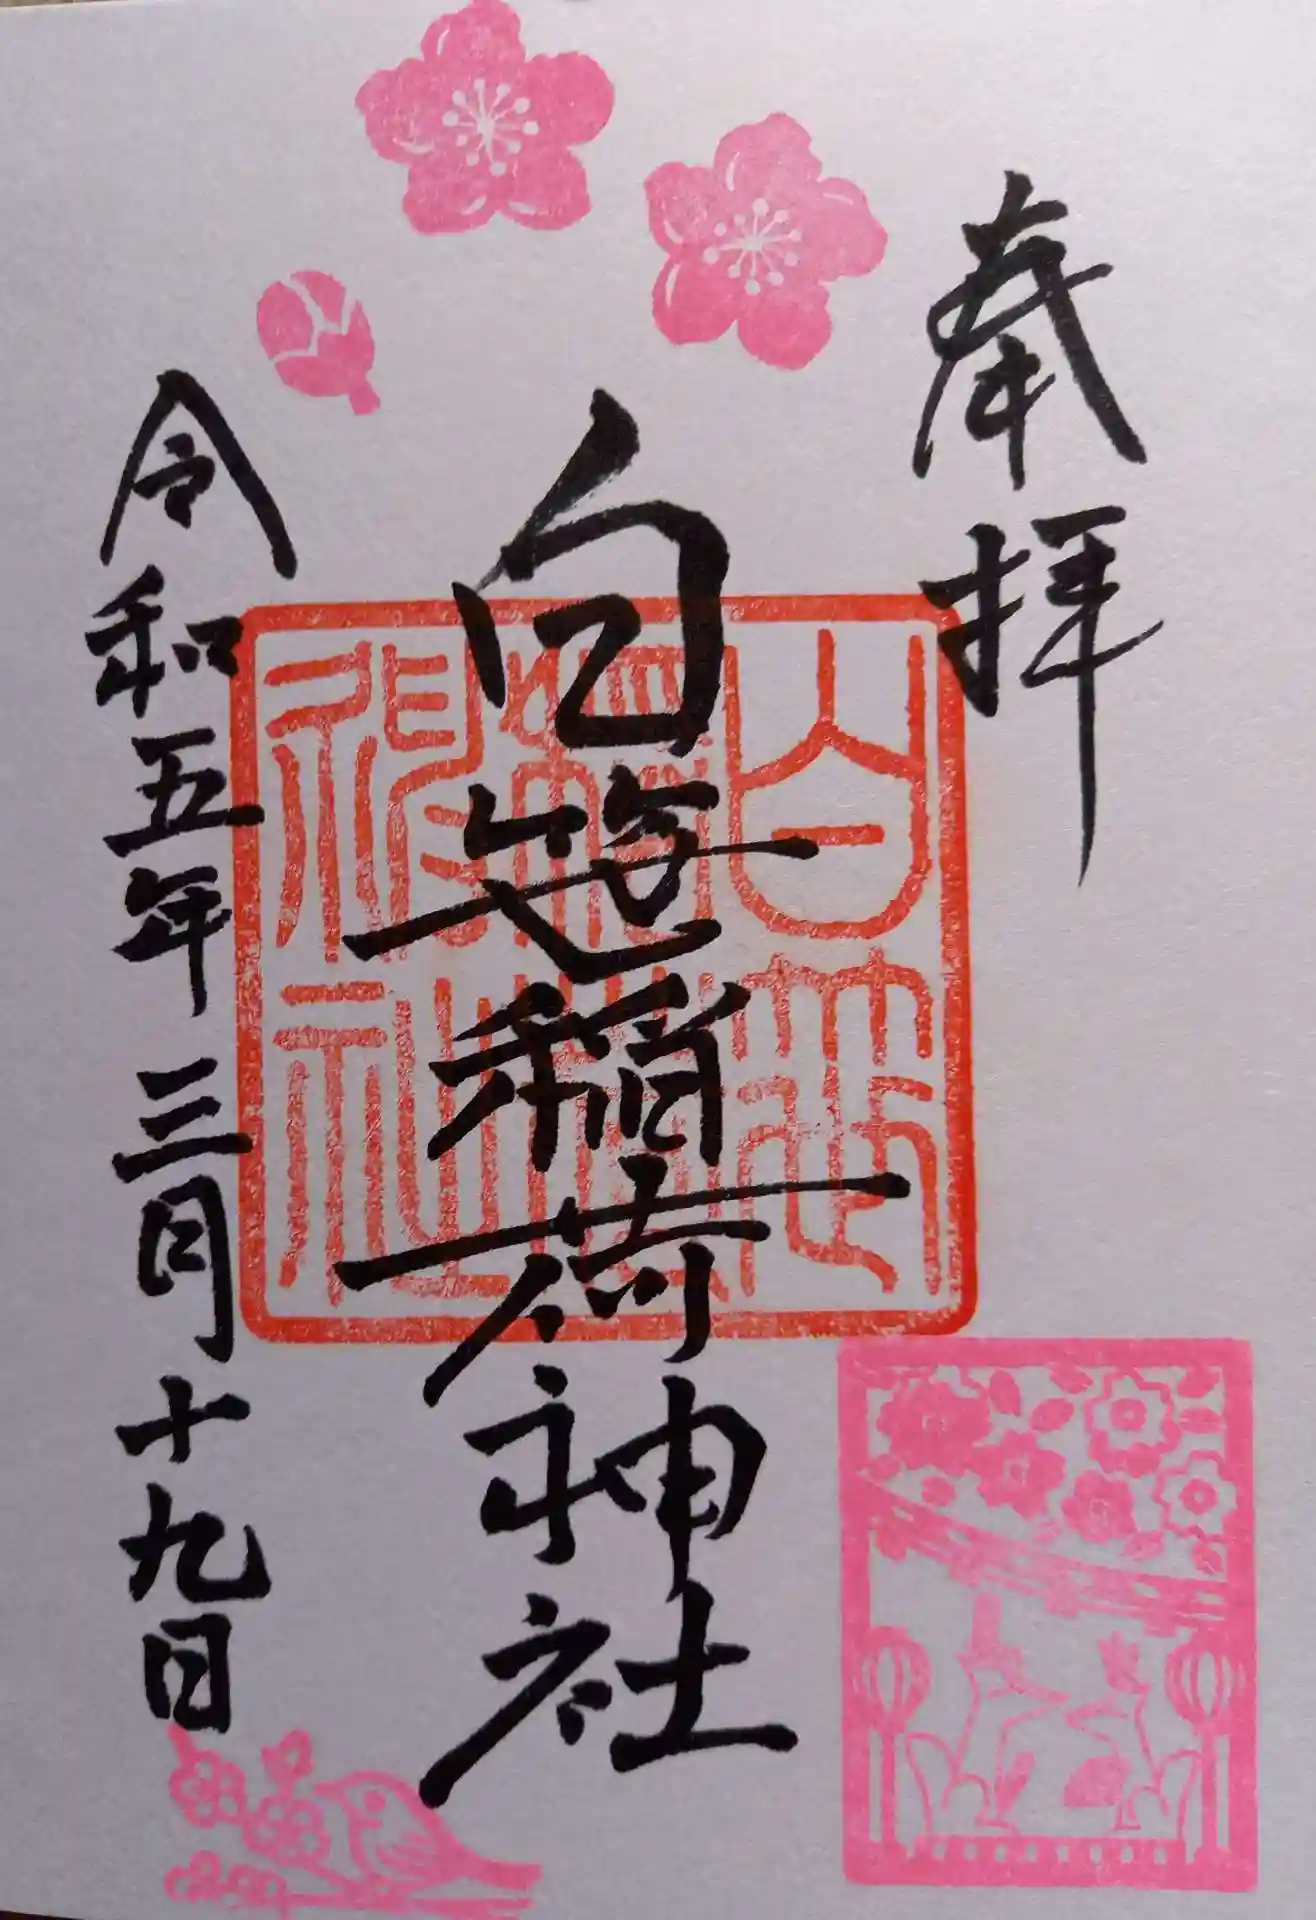 奉拝
白笹稲荷神社
令和五年三月十九日
白笹
稲荷
神社